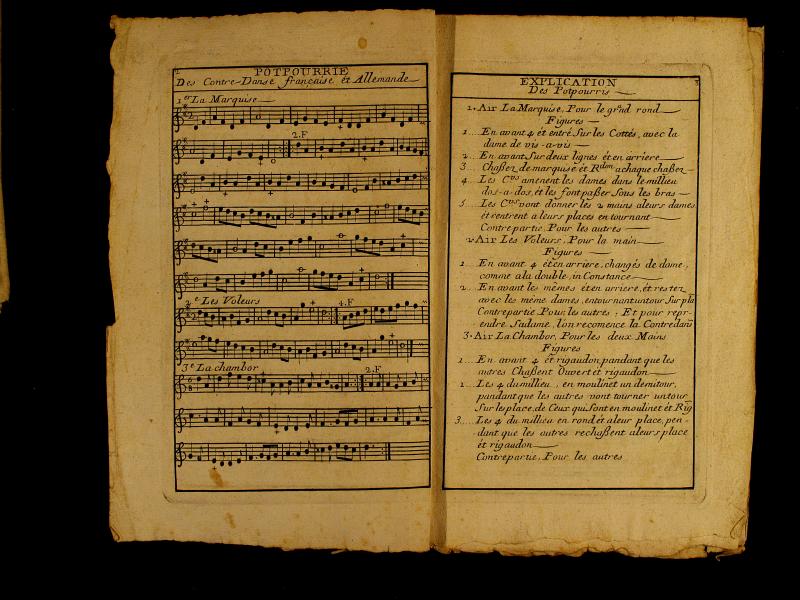 2
POTPOURRIE
Des Contre-Danse française et Allemande
1er La Marquise
2.F
2e Les Voleurs
4.F
3e La chambor
2.F
3
EXPLICATION
Des Potpourris
1. Air La Marquise, Pour le grand rond
Figures
1... En avant 4 et entré Sur les Cottés, avec la
dame de vis-a-vis
2... En avant Sur deux lignes et en arriere
3... Chaßen de marquise et Rdon a chaque chaßen
4... Les Crs amenent les dames dans le millieu
dos-a-dos, et les font paßer Sous les bras
5... Les Crs vont donner les 2 mains a leurs dames
et rentrent a leurs places en tournant
Contre partie, Pour les autres
2. Air Les Voleurs, Pour la main
Figures
1... En avant 4 et en arriere, changés de dame,
comme a la double, in Constance
2... En avant les mêmes et en arriere, et restez
avec les même dames, en tournant un tour Sur pla
Contrepartie Pour, les autres; Et pour repr-
endre Sa dame, l'on recomence la Contredans
3. Air La Chambor, Pour les deux Mains
Figures
1... En avant 4 et rigaudon, pandant que les
autres Chaßent Ouvert et rigaudon
1... Les 4 du millieu, en moulinet un demi tour,
pandant que les autres vont tourner un tour
Sur les place, de Ceux qui Sont en moulinet et Rig
3... Les 4 du millieu en rond et a leur place, pen-
dant que les autres rechaßent a leurs place
et rigaudon
Contre partie, Pour les autres